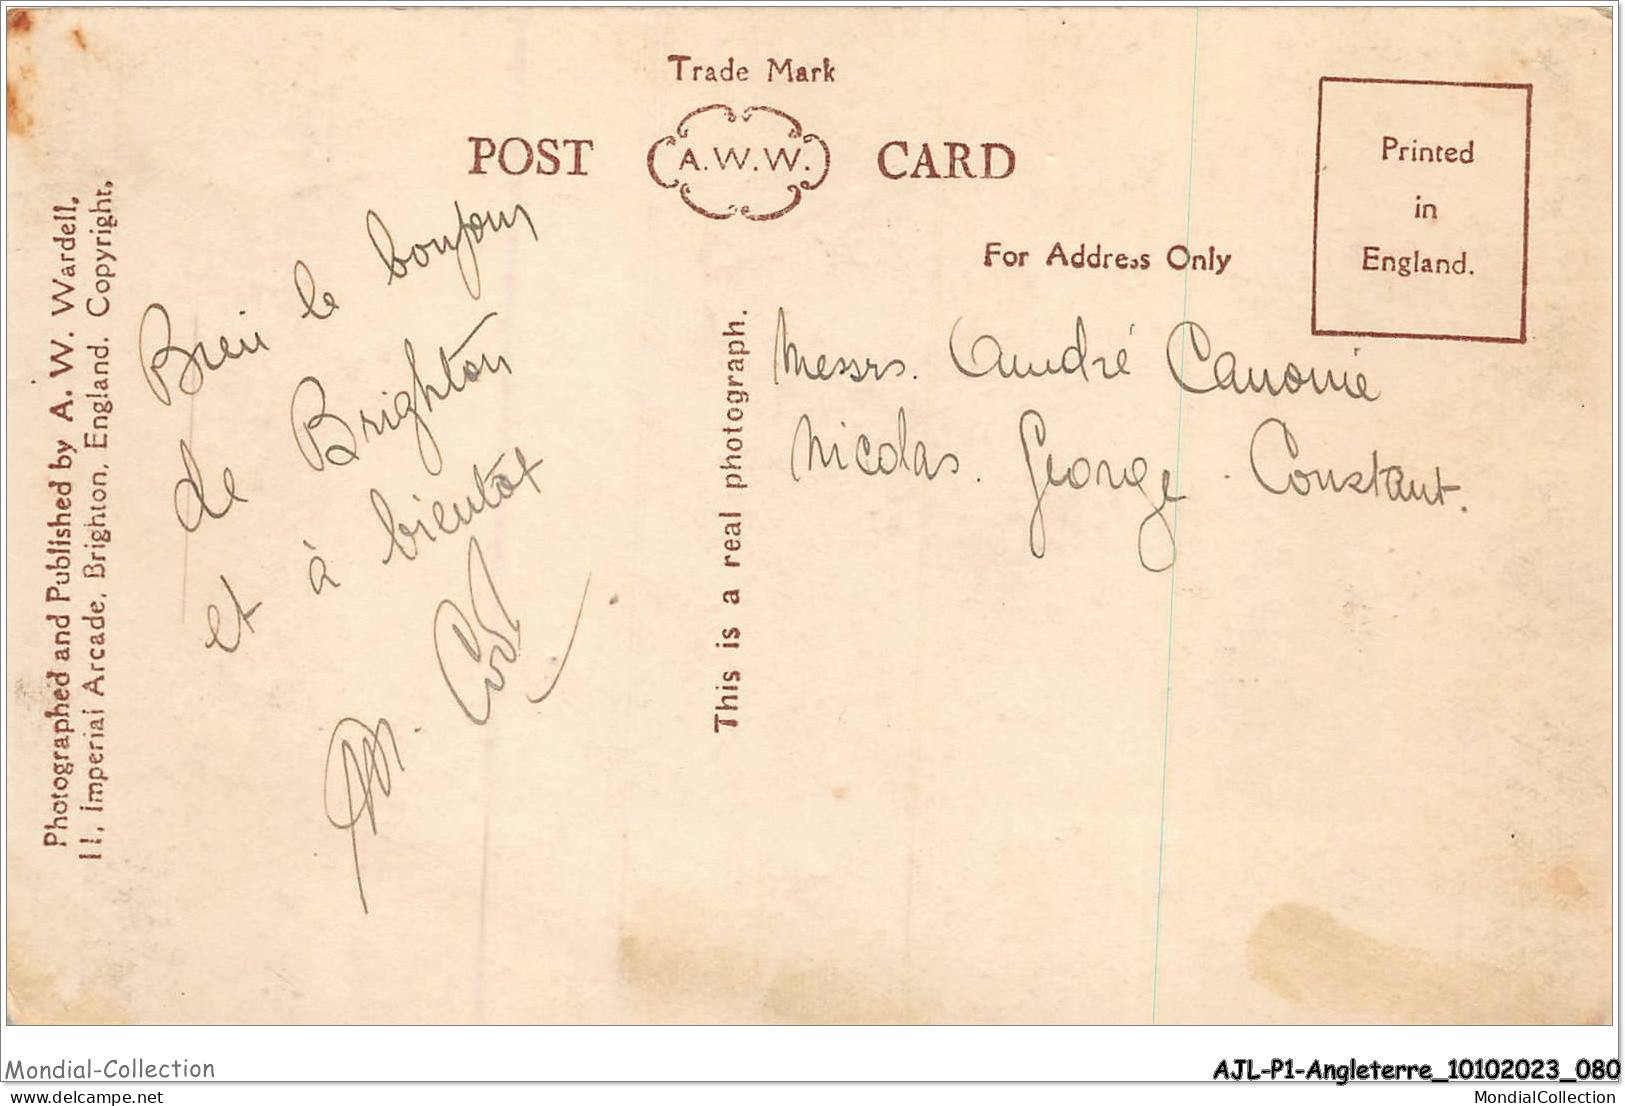 Trade Mark
POST A.W.W. CARD
Printed
in
England.
For Address Only
Photographed and Published by A. W. Wardell,
11, Imperial Arcade, Brighton, England. Copyright.
Bien le bonjour
de Brighton
et à bientôt
This is a real photograph.
Messrs. André Canonie
Nicolas. George. Constant.
Mondial-Collection
AJL-P1-Angleterre_10102023_080
delcampe.net
MondialCollection